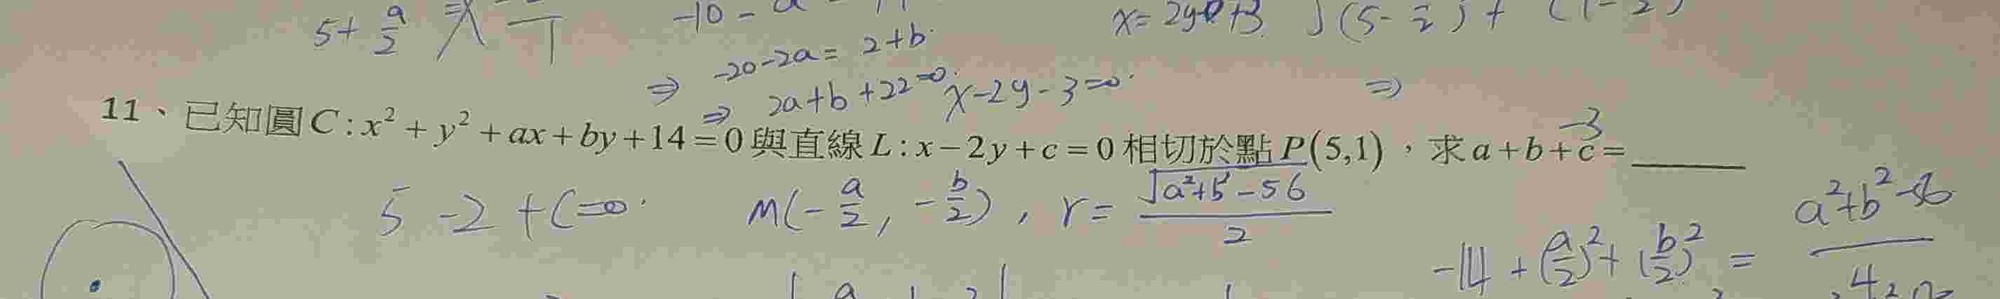 5+a/2
-10-a
x=2y+3
-20-2a=2+b
⇒
⇒ 2a+b+22=0
x-2y-3=0
⇒
-3
11、已知圓C:x²+y²+ax+by+14=0與直線L:x-2y+c=0相切於點P(5,1),求a+b+c=______
5-2+C=0
M(-a/2, -b/2), r=√(a²+b²-56)/2
-14+(a/2)²+(b/2)²=(a²+b²-56)/4